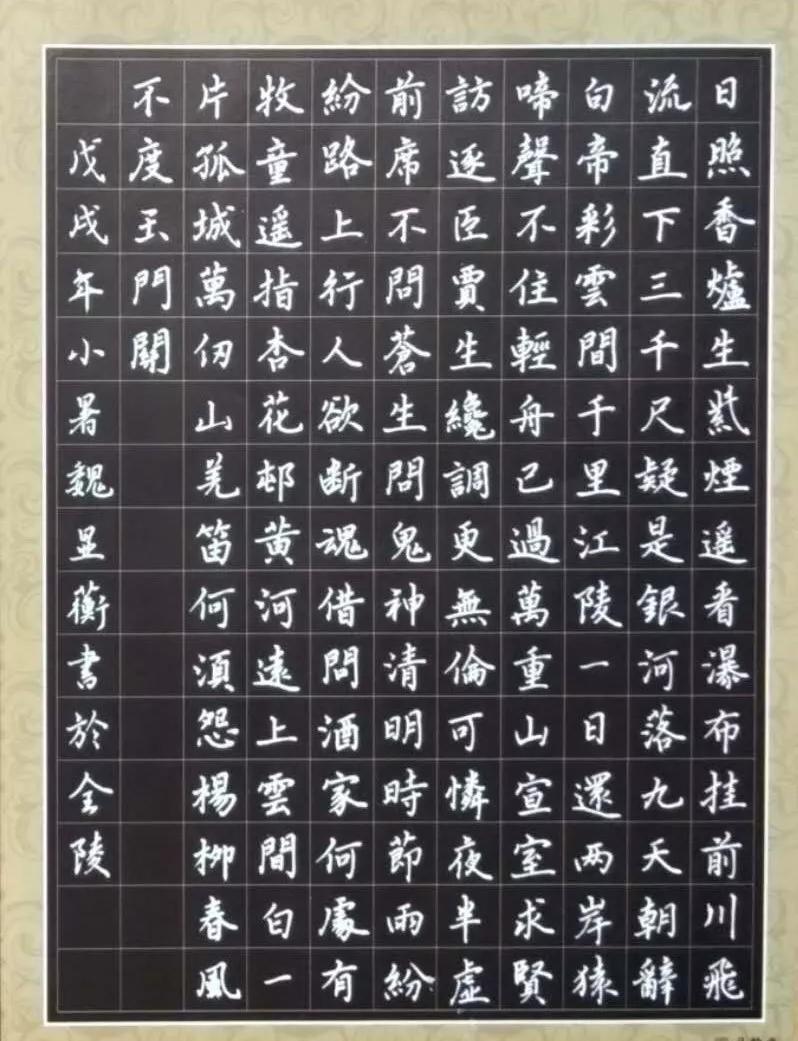 日照香爐生紫煙遥看瀑布挂前川飛
流直下三千尺疑是銀河落九天朝辭
白帝彩雲間千里江陵一日還两岸猿
啼聲不住輕舟已過萬重山宣室求賢
訪逐臣賈生纔調更無倫可憐夜半虛
前席不問蒼生問鬼神清明時節雨紛
紛路上行人欲断魂借問酒家何處有
牧童遥指杏花邨黄河遠上雲間白一
片孤城萬仞山羌笛何須怨楊柳春風
不度玉門關
戊戌年小暑魏显蘅書於金陵